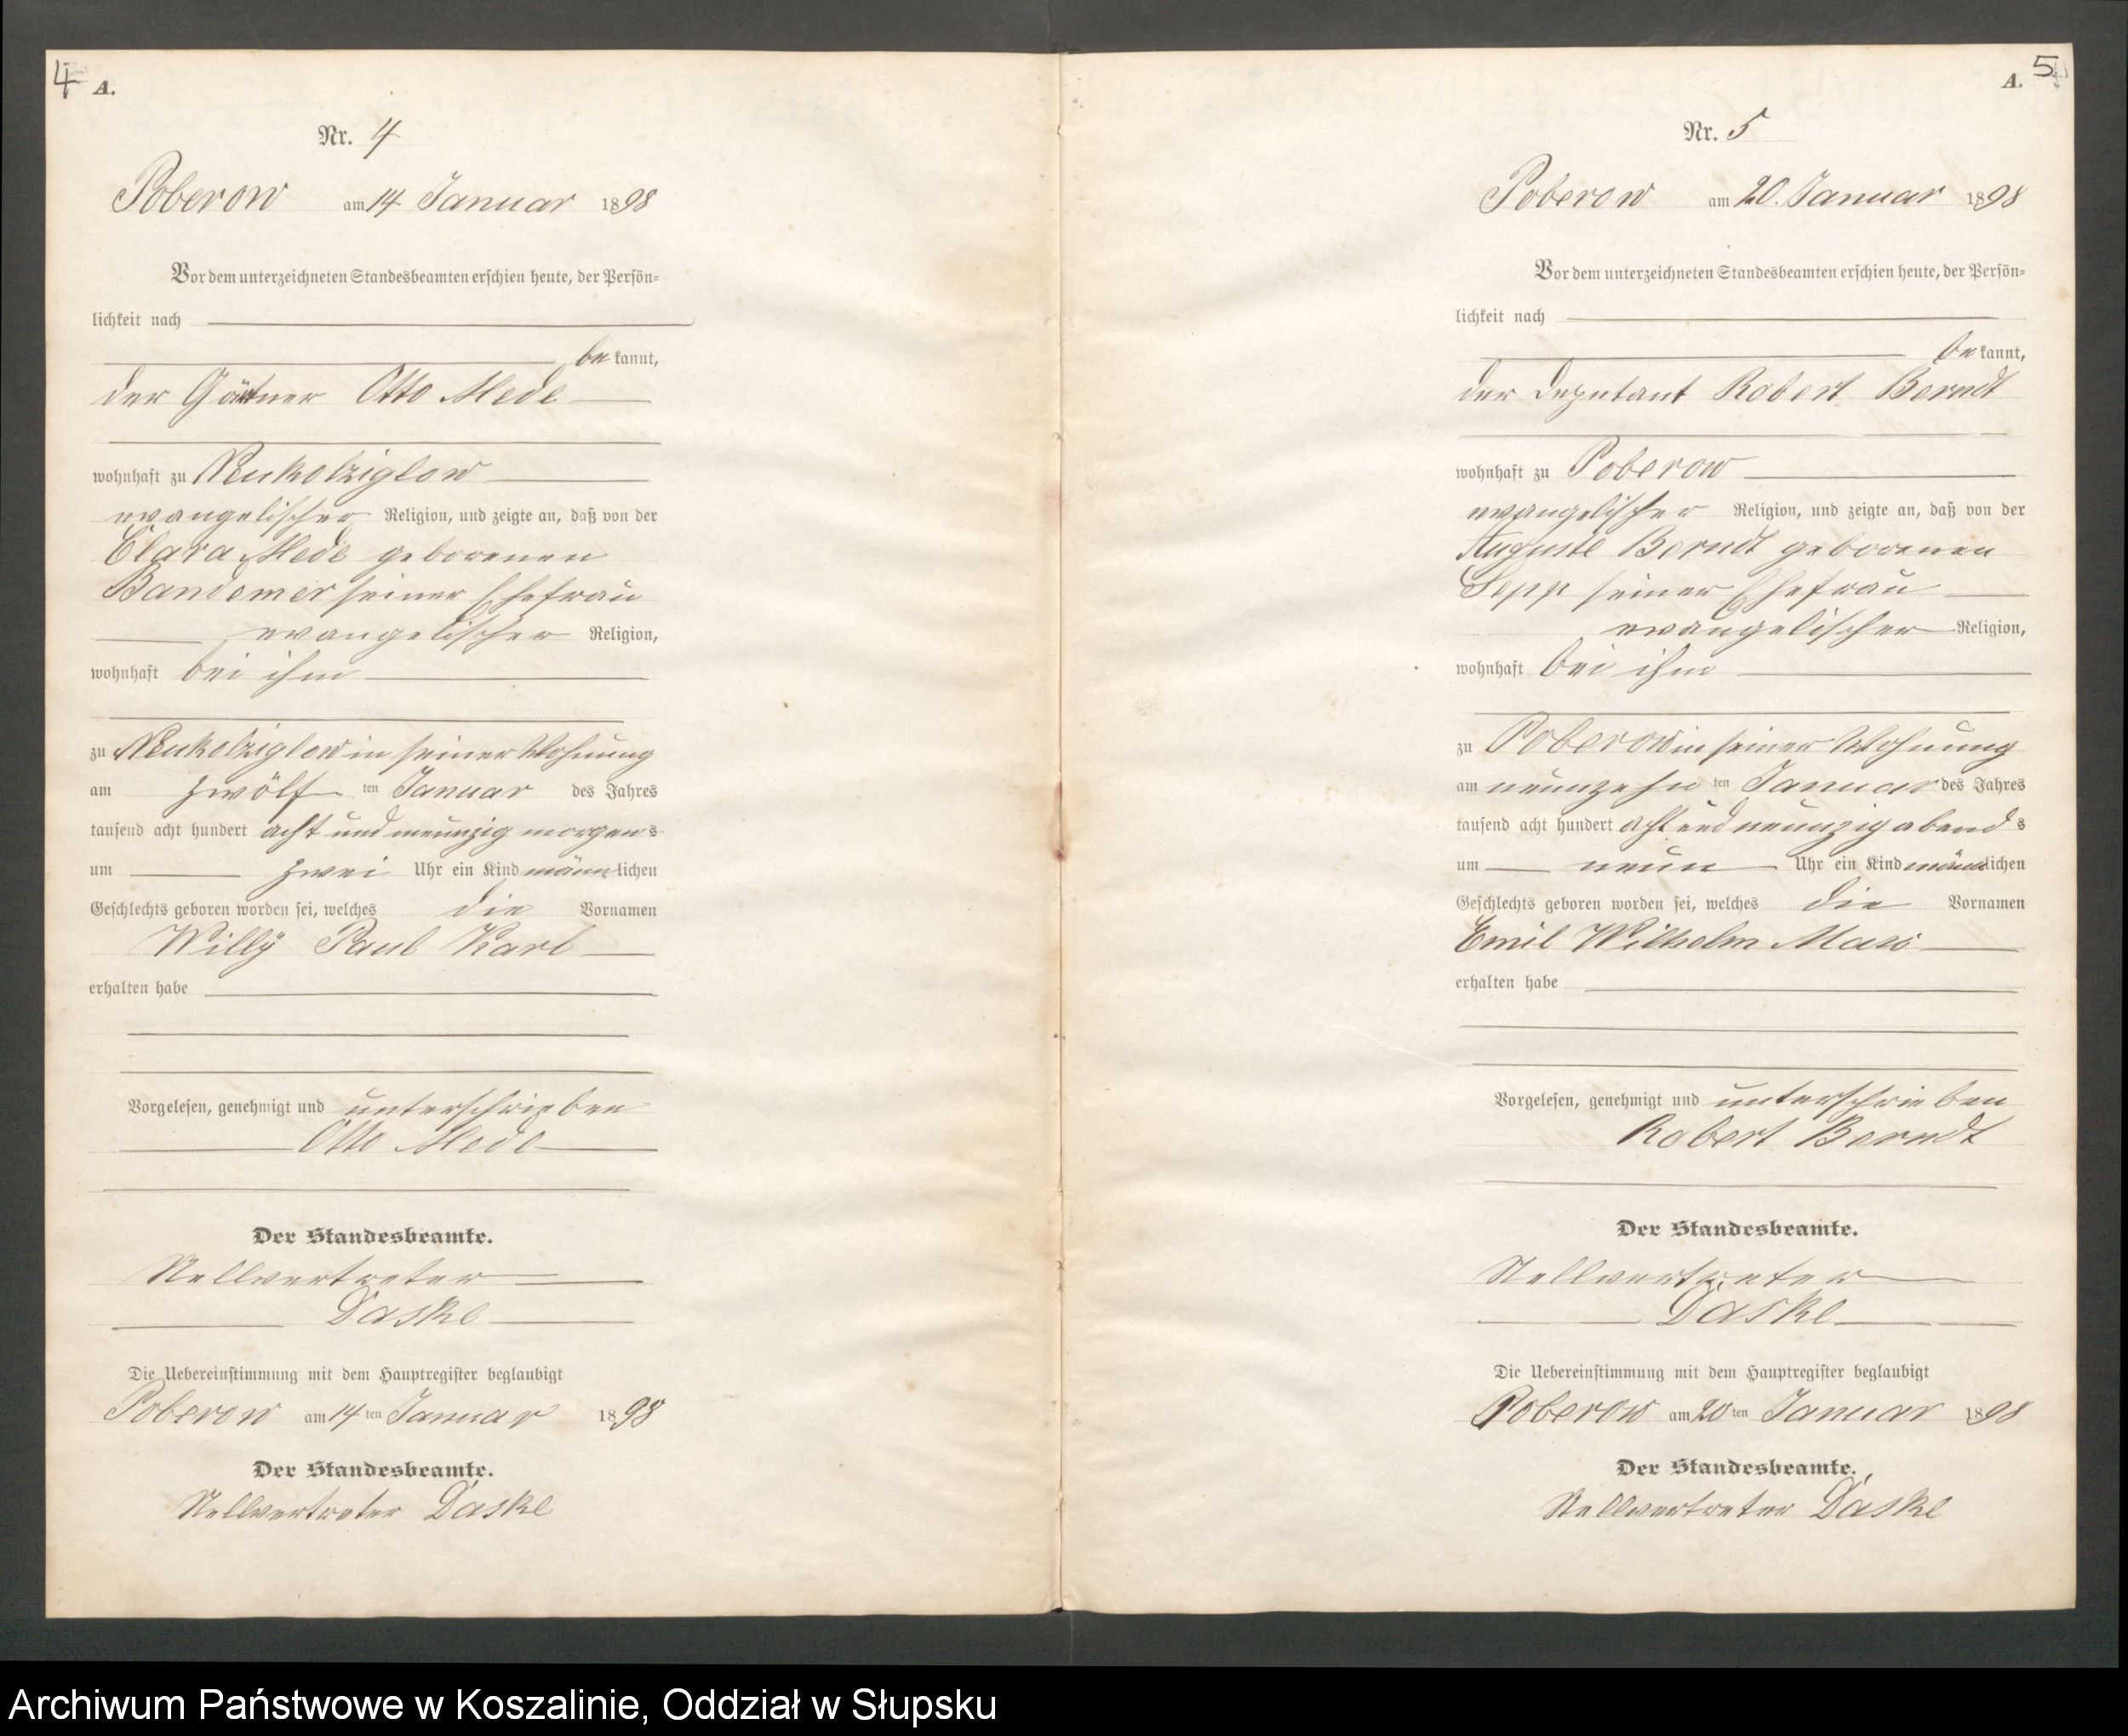 4
A.
Nr. 4
Poberow am 14. Januar 1898
Vor dem unterzeichneten Standesbeamten erschien heute, der Persön-
lichkeit nach
bekannt,
der Gärtner Otto Mede
wohnhaft zu Neukolziglow
evangelischer Religion, und zeigte an, daß von der
Clara Mede geborenen
Bandemer seiner Ehefrau
evangelischer Religion,
wohnhaft bei ihm
zu Neukolziglow in seiner Wohnung
am zwölf ten Januar des Jahres
tausend acht hundert acht und neunzig morgens
um zwei Uhr ein Kind männlichen
Geschlechts geboren worden sei, welches die Vornamen
Willy Paul Karl
erhalten habe
Vorgelesen, genehmigt und unterschrieben
Otto Mede
Der Standesbeamte.
Stellvertreter
Daske
Die Uebereinstimmung mit dem Hauptregister beglaubigt
Poberow am 14 ten Januar 1898
Der Standesbeamte.
Stellvertreter Daske
A. 5
Nr. 5
Poberow am 20. Januar 1898
Vor dem unterzeichneten Standesbeamten erschien heute, der Persön-
lichkeit nach
bekannt,
der Deputant Robert Berndt
wohnhaft zu Poberow
evangelischer Religion, und zeigte an, daß von der
Auguste Berndt geborenen
Sepp seiner Ehefrau
evangelischer Religion,
wohnhaft bei ihm
zu Poberow in seiner Wohnung
am neunzehn ten Januar des Jahres
tausend acht hundert acht und neunzig abends
um neun Uhr ein Kind männlichen
Geschlechts geboren worden sei, welches die Vornamen
Emil Wilhelm
erhalten habe
Vorgelesen, genehmigt und unterschrieben
Robert Berndt
Der Standesbeamte.
Stellvertreter
Daske
Die Uebereinstimmung mit dem Hauptregister beglaubigt
Poberow am 20 ten Januar 1898
Der Standesbeamte.
Stellvertreter Daske
Archiwum Państwowe w Koszalinie, Oddział w Słupsku